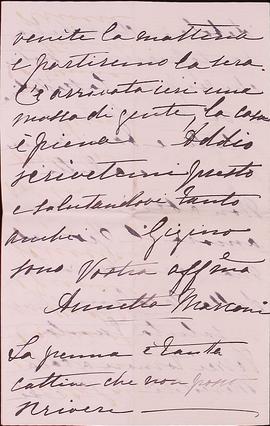 venite la mattina
e partiremo la sera.
C'è arrivata ieri una
massa di gente, la casa
è piena Addio
scrivetemi presto
e salutandovi tanto
anche Gigino
sono Vostra affma
Annetta Marconi
La penna è tanta
cattiva che non posso
scrivere